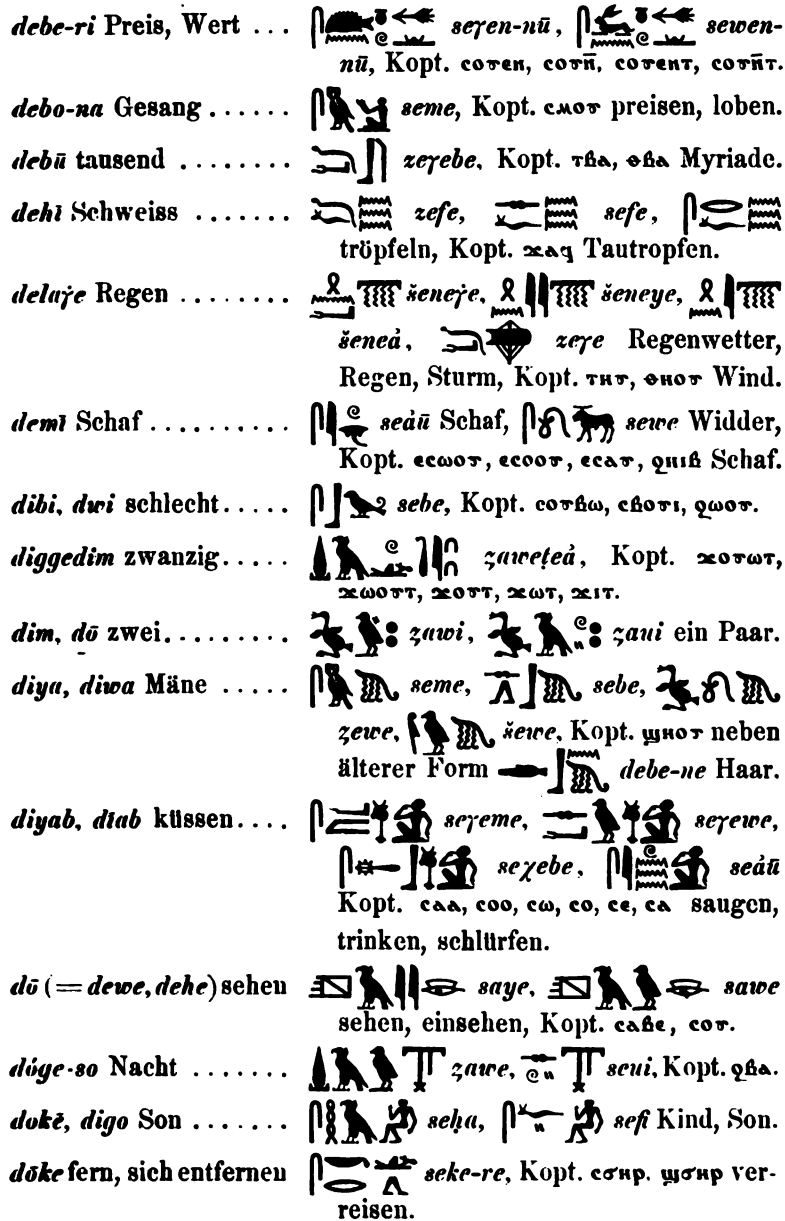 debe-ri Preis, Wert ... seγen-nū, sewen-
nū, Kopt. ⲥⲟⲩⲉⲛ, ⲥⲟⲩⲛ̄, ⲥⲟⲩⲉⲛⲧ, ⲥⲟⲩⲛ̄ⲧ.
debo-na Gesang ...... seme, Kopt. ⲥⲙⲟⲩ preisen, loben.
debū tausend ........ zeγebe, Kopt. ⲧⲃⲁ, ⲑⲃⲁ Myriade.
dehī Schweiss ....... zefe, sefe,
tröpfeln, Kopt. ϫⲁϥ Tautropfen.
delaγ̇e Regen ........ šeneγ̇e, šeneye,
šeneȧ, zeγe Regenwetter,
Regen, Sturm, Kopt. ⲧⲏⲩ, ⲑⲏⲟⲩ Wind.
demī Schaf .......... seȧū Schaf, sewe Widder,
Kopt. ⲉⲥⲱⲟⲩ, ⲉⲥⲟⲟⲩ, ⲉⲥⲁⲩ, ϩⲓⲏⲃ Schaf.
dibi, dwi schlecht..... sebe, Kopt. ⲥⲟⲩⲃⲱ, ⲥⲃⲟⲩⲓ, ϩⲱⲟⲩ.
diggedim zwanzig..... ȥaweṭeȧ, Kopt. ϫⲟⲩⲱⲧ,
ϫⲱⲟⲩⲧ, ϫⲟⲩⲧ, ϫⲱⲧ, ϫⲓⲧ.
dim, dō zwei......... ȥawi, ȥaui ein Paar.
diya, diwa Mäne ..... seme, sebe,
ȥewe, šewe, Kopt. ϣⲏⲟⲩ neben
älterer Form debe-ne Haar.
diyab, dīab küssen.... seγeme, seγewe,
seχebe, seȧū
Kopt. ⲥⲁⲁ, ⲥⲟⲟ, ⲥⲱ, ⲥⲟ, ⲥⲉ, ⲥⲁ saugen,
trinken, schlürfen.
dō (= dewe, dehe) sehen saye, sawe
sehen, einsehen, Kopt. ⲥⲁⲃⲉ, ⲥⲟⲩ.
dóge-so Nacht ....... ȥawe, seui, Kopt. ϩⲃⲁ.
dokĕ, digo Son ....... seḥa, sefi Kind, Son.
dōke fern, sich entfernen seke-re, Kopt. ⲥϭⲏⲣ. ϣϭⲏⲣ ver-
reisen.